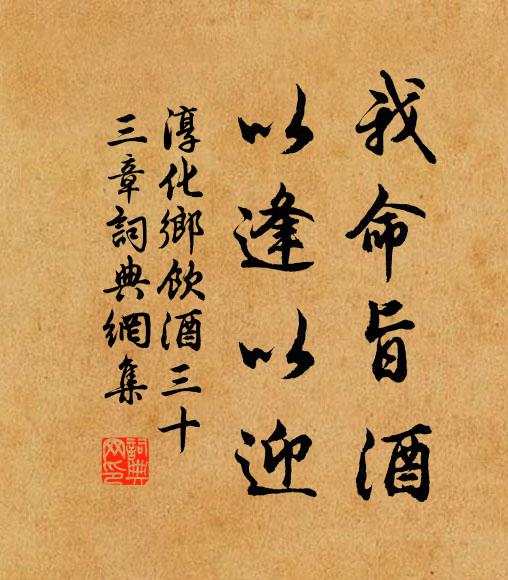 我命旨酒
以逢以迎
淳化鄉飲酒三十
三章詞典網集
詞典
网印